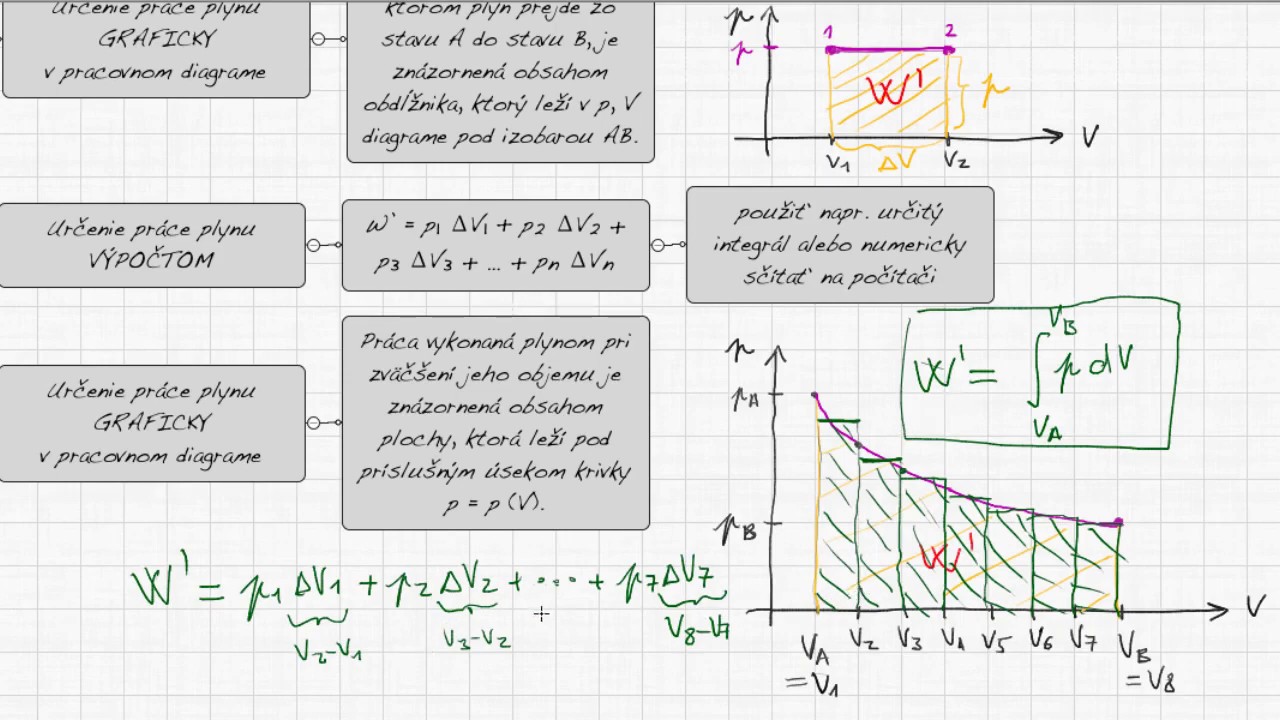 Určenie práce plynu
GRAFICKY
v pracovnom diagrame
ktorom plyn prejde zo
stavu A do stavu B, je
znázornená obsahom
obdĺžnika, ktorý leží v p, V
diagrame pod izobarou AB.
p
p
1
2
W'
p
V
V1
ΔV
V2
Určenie práce plynu
VÝPOČTOM
W' = p1 ΔV1 + p2 ΔV2 +
p3 ΔV3 + ... + pn ΔVn
použiť napr. určitý
integrál alebo numericky
sčítať na počítači
Určenie práce plynu
GRAFICKY
v pracovnom diagrame
Práca vykonaná plynom pri
zväčšení jeho objemu je
znázornená obsahom
plochy, ktorá leží pod
príslušným úsekom krivky
p = p (V).
VB
W' = ∫ p dV
VA
p
pA
pB
W'
V
VA
V2
V3
V4
V5
V6
V7
VB
= V1
= V8
W' = p1 ΔV1 + p2 ΔV2 + ... + p7 ΔV7
V2-V1
V3-V2
V8-V7